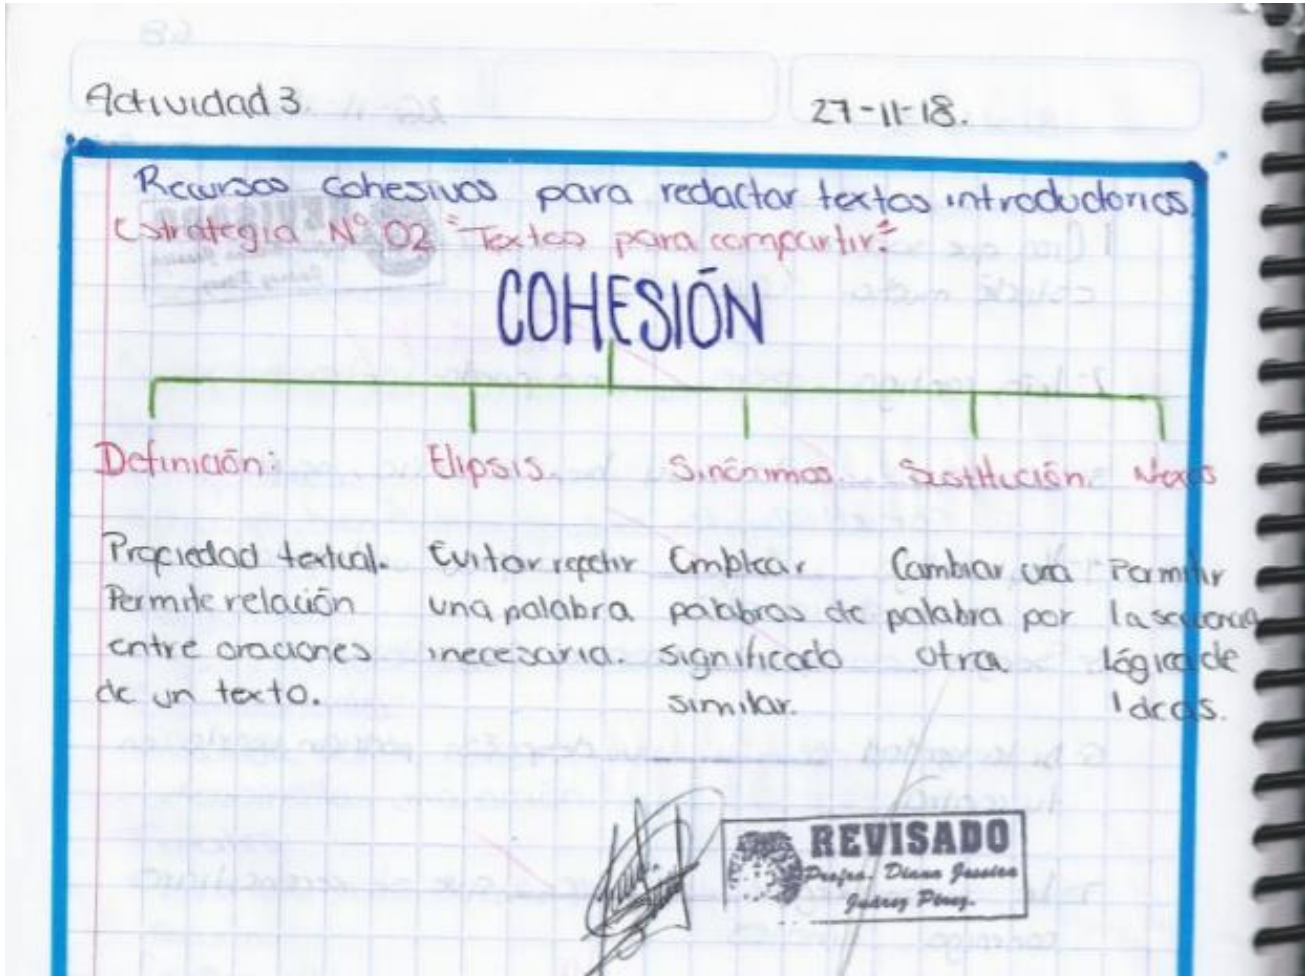 Actividad 3.
27-11-18.
Recursos cohesivos para redactar textos introductorios.
Estrategia N° 02 "Textos para compartir"
COHESIÓN
Definición:
Propiedad textual.
Permite relación
entre oraciones
de un texto.
Elipsis.
Evitar repetir
una palabra
inecesaria.
Sinónimos.
Emplear
palabras de
significado
similar.
Sustitución.
Cambiar una
palabra por
otra
Nexos
Permitir
la secuencia
lógica de
Ideas.
REVISADO
Profra. Diana Jessica
Juárez Pérez.